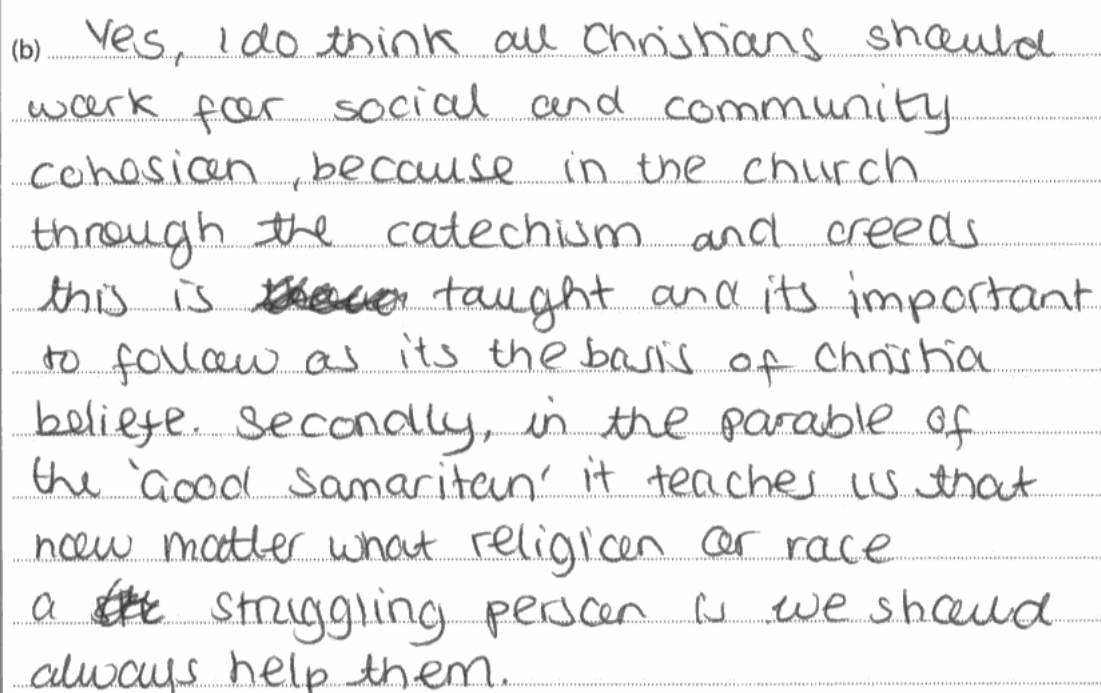 (b) Yes, I do think all Christians should
work for social and community
cohosion, because in the church
through the catechism and creeds
this is taught and its important
to follow as its the basis of Christia
beliefe. Secondly, in the parable of
the 'Good Samaritan' it teaches us that
now matter what religion or race
a struggling person is we should
always help them.